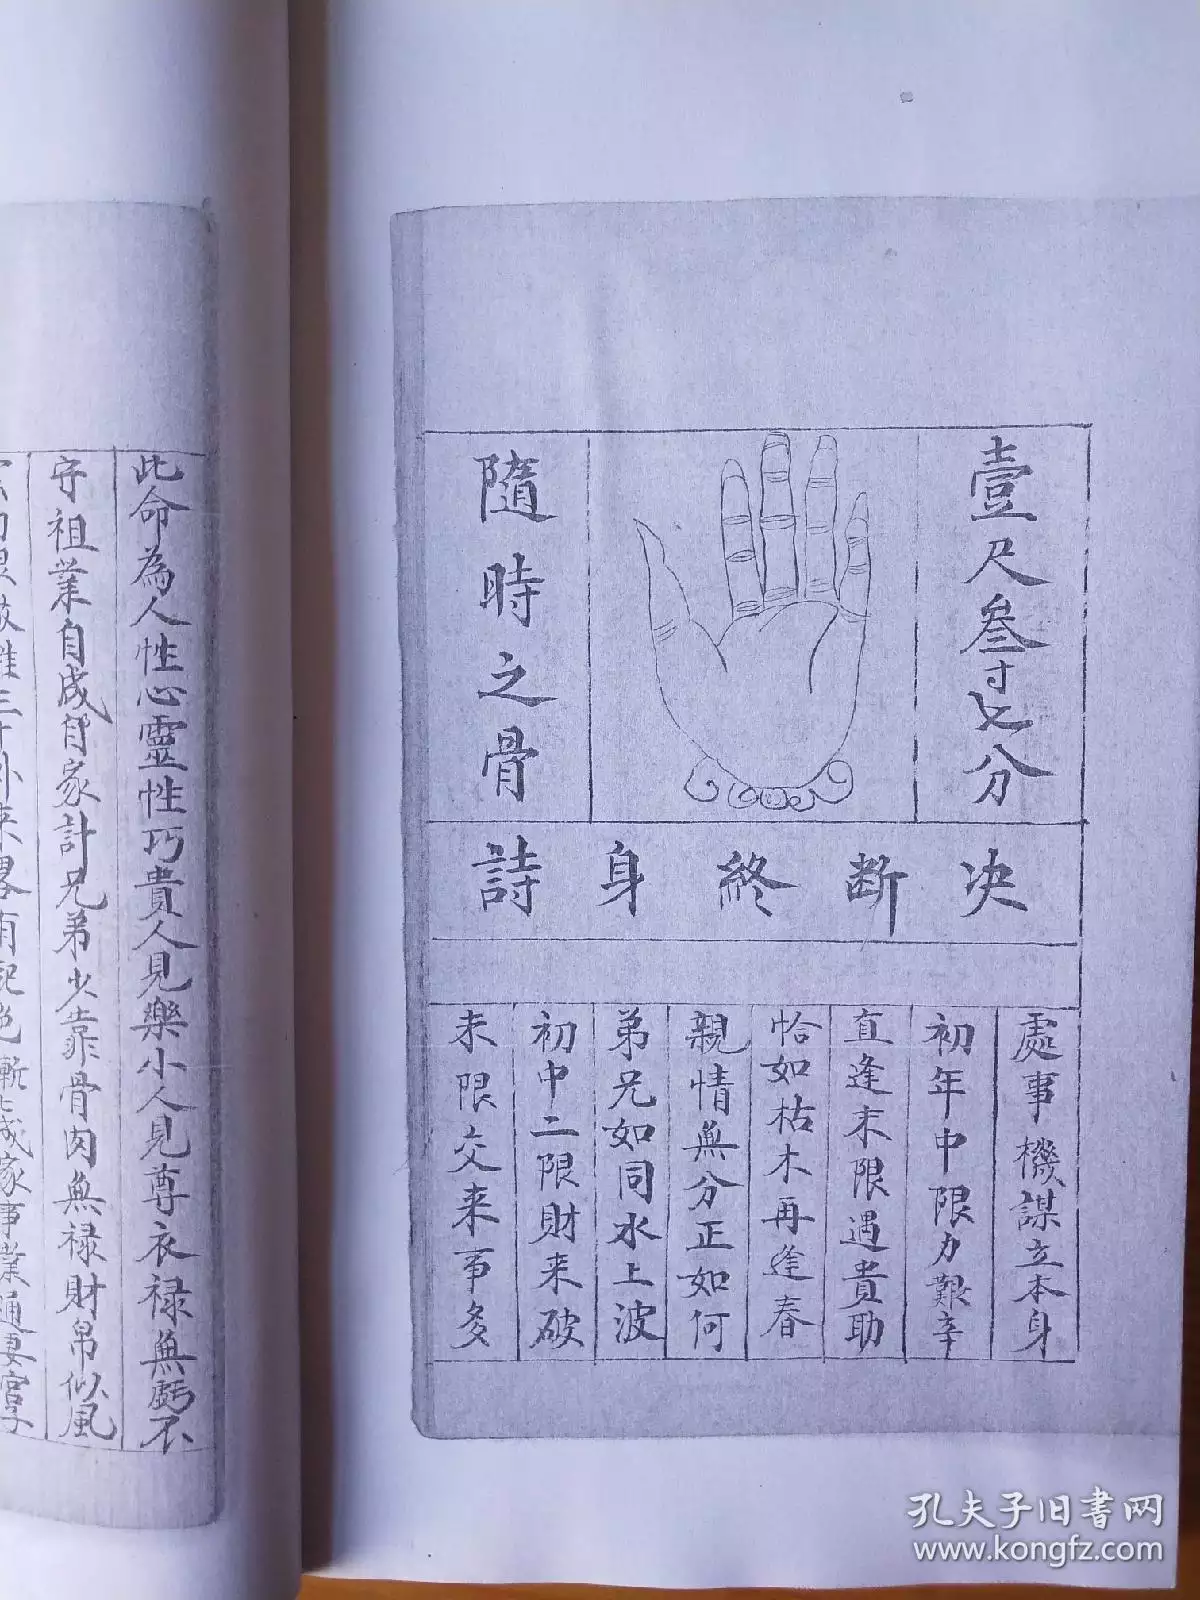 壹尺叁寸七分
隨時之骨
決斷終身詩
處事機謀立本身
初年中限力艱辛
直逢末限遇貴助
恰如枯木再逢春
親情無分正如何
弟兄如同水上波
初中二限財来破
未限交来事多
此命為人性心靈性巧貴人見樂小人見尊衣禄無虧不
守祖業自成自家計兄弟少靠骨肉無禄財帛似風
孔夫子旧書网
www.kongfz.com